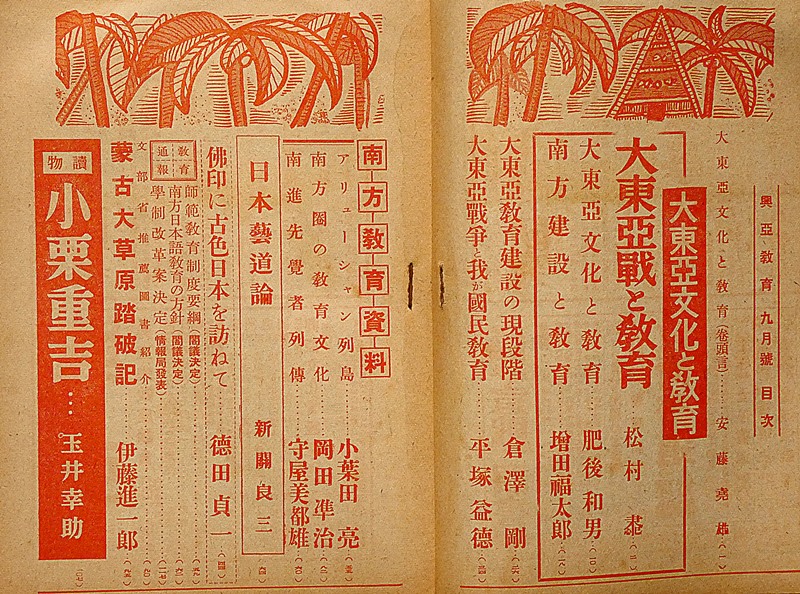 興亞教育九月號 目次
大東亞文化と教育(卷頭言)……安藤堯雄(一)
大東亞文化と教育
大東亞戰と教育……松村
大東亞文化と教育……肥後和男
南方建設と教育……增田福太郎
大東亞教育建設の現段階……倉澤剛
大東亞戰爭と我が國民教育……平塚益德
南方教育資料
アリューシャン列島……小葉田亮
南方圈の教育文化……岡田準治
南進先覺者列傳……守屋美都雄
日本藝道論 新關良三
佛印に古色日本を訪ねて……德田貞一
教育通報
師範教育制度要綱(閣議決定)
南方日本語教育の方針(閣議決定)
學制改革案決定(情報局發表)
文部省推薦圖書紹介
蒙古大草原踏破記……伊藤進一郎
讀物
小栗重吉…玉井幸助